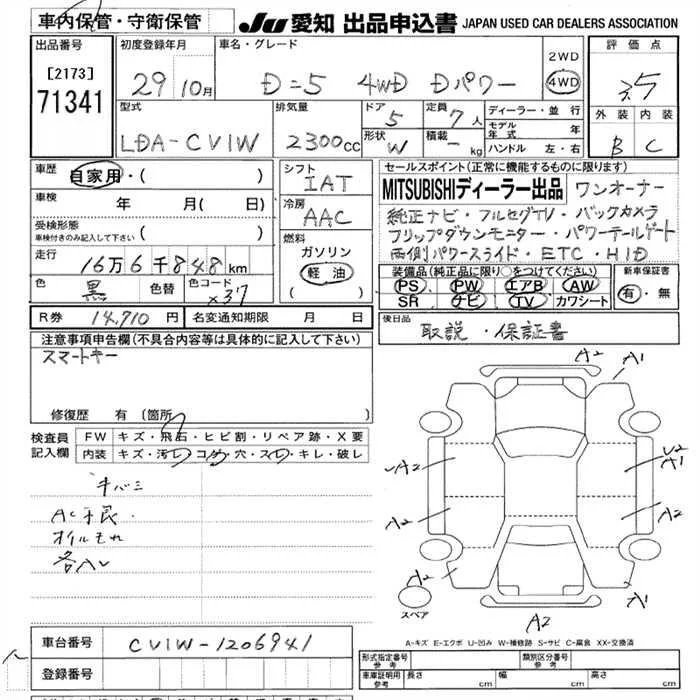 車内保管・守衛保管
JU 愛知 出品申込書 JAPAN USED CAR DEALERS ASSOCIATION
出品番号
[2173]
71341
初度登録年月
29 10月
車名・グレード
D=5 4WD Dパワー
2WD
4WD
評価点
外装 内装
B C
型式
LDA-CV1W
排気量
2300cc
ドア
5
形状
W
定員
7人
積載
- kg
ディーラー・並行
モデル年式 年
ハンドル 左・右
車歴
自家用・( )
車検 年 月( 日)
受検形態
車検付きのみ記入して下さい ( )
走行
16万6千848km
色
黒
色替
色コード
X37
シフト
IAT
冷房
AAC
燃料
ガソリン
軽油
セールスポイント(正常に機能するものに限ります)
MITSUBISHIディーラー出品 ワンオーナー
純正ナビ・フルセグTV・バックカメラ
フリップダウンモニター・パワーテールゲート
両側パワースライド・ETC・HID
装備品(純正品に限り○をつけてください)
PS PW エアB AW
SR ナビ TV カワシート
新車保証書
有・無
R券 14,710円
名変通知期限 月 日
後日品
取説・保証書
注意事項申告欄(不具合内容等は具体的に記入して下さい)
スマートキー
修復歴 有(箇所 )
検査員記入欄
FW キズ・飛石・ヒビ割・リペア跡・X要
内装 キズ・汚レ・コゲ・穴・スレ・キレ・破レ
AC不良
オイルモレ
A2 A1
A2 U2 A2
A2 A2
A2 A1
A2
スペア
A-キズ E-エクボ U-凹み W-補修跡 S-サビ C-腐食 XX-交換済
車台番号
CV1W-1206941
登録番号
形式指定番号
参考
類別区分番号
参考
車庫証明用
参考
長さ cm
幅 cm
高さ cm